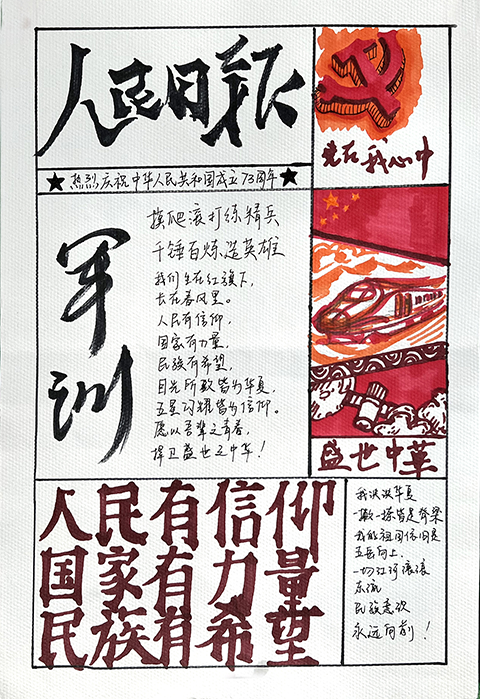 人民日报
党在我心中
★热烈庆祝中华人民共和国成立73周年★
军训
摸爬滚打练精兵
千锤百炼造英雄
我们生在红旗下,
长在春风里。
人民有信仰,
国家有力量,
民族有希望,
目光所致皆为华夏,
五星闪耀皆为信仰。
愿以吾辈之青春,
捍卫盛世之中华!
盛世中华
人民有信仰
国家有力量
民族有希望
我泱泱华夏
一撇一捺皆是脊梁
我的祖国信仰是
五岳向上,
一切江河滚滚
东流
民族意欢
永远向前!